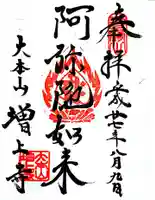 奉拝 平成廿七年八月九日
阿弥陀如来
大本山 増上寺